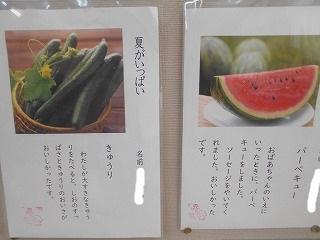 夏がいっぱい
名前
きゅうり
わたしが大すきなきゅう
りをたべると、しおのすっ
ぱさときゅうりのおいさが
おいしかったです。
バーベキュー
おばあちゃんのいえに
いったときに、バーベ
キューをしました。
ソーセージをやいてく
れました。おいしかった
です。